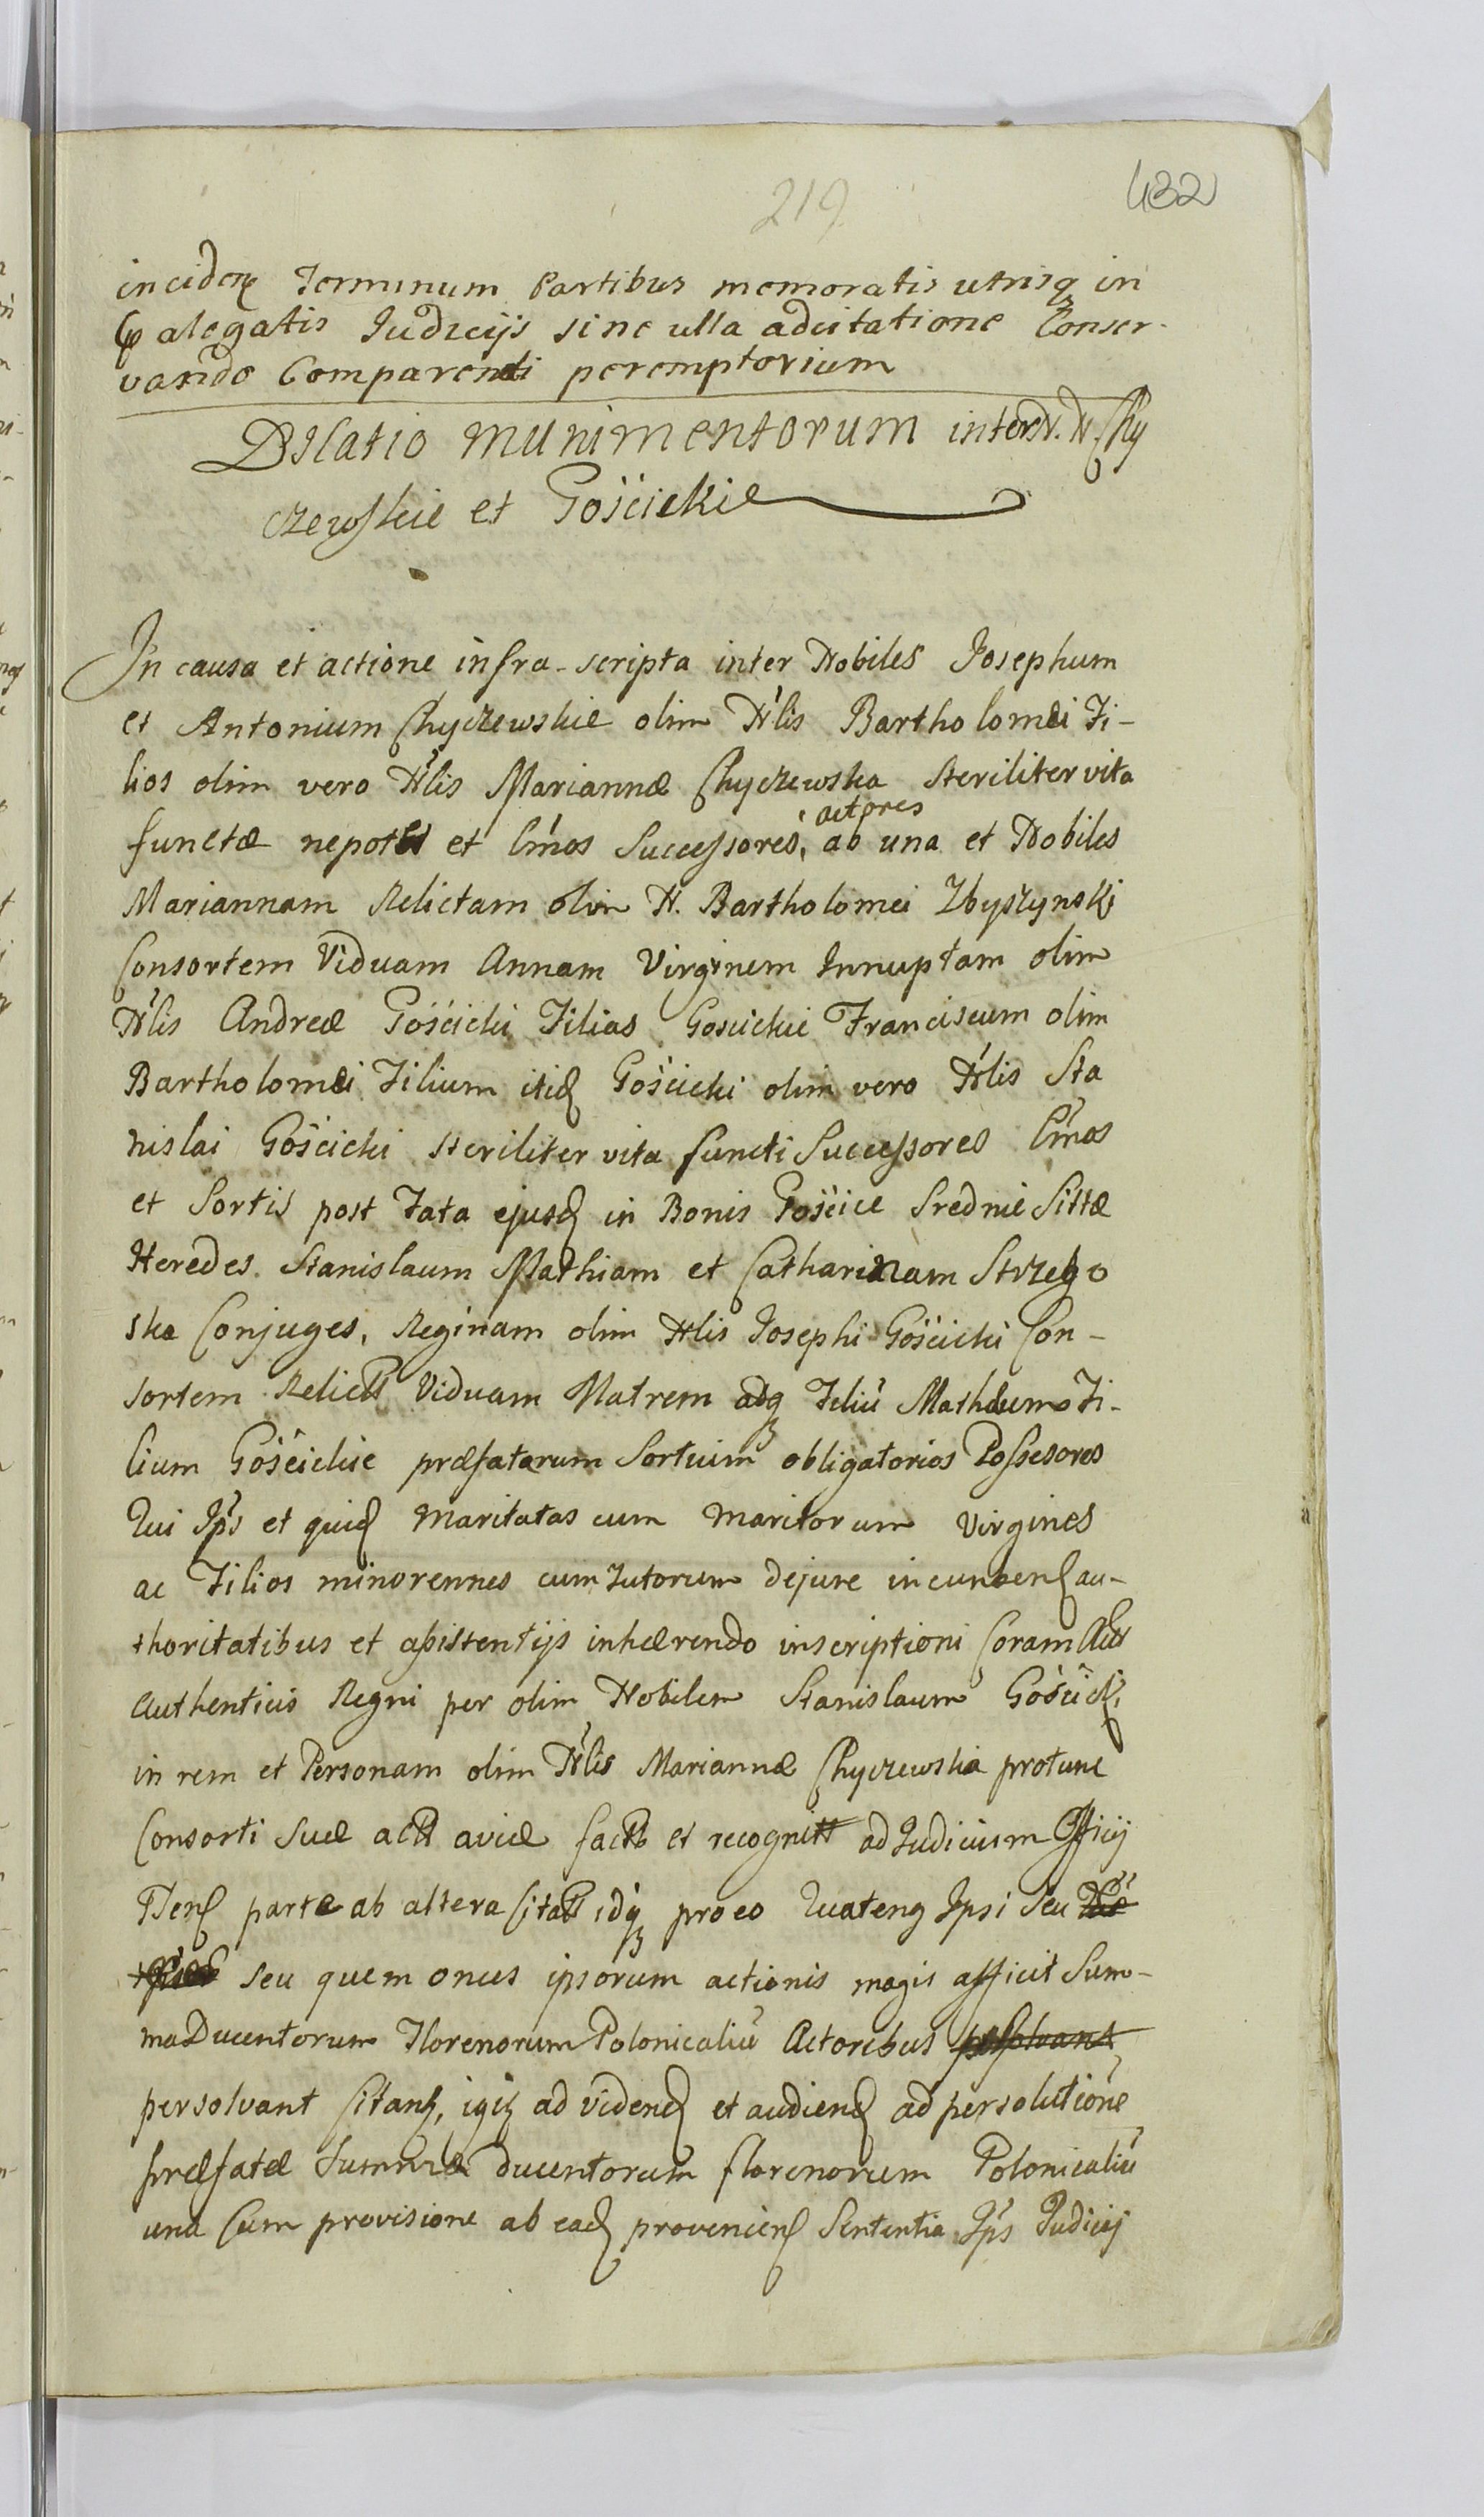 219
432
inciden Terminum Partibus memoratis utrisq in
alegatis Judicijs sine ulla adcitatione Conser-
vando Comparendi peremptorium
Dilatio munimentorum inter N. N. Chy
czewskie et Gościckie
In causa et actione infra-scripta inter Nobiles Josephum
et Antonium Chyczewskie olim Nlis Bartholomæi Fi-
lios olim vero Nlis Mariannæ Chyczewska steriliter vita
functæ nepotes et lm̃os Successores, actores ab una et Nobiles
Mariannam Relictam olim N. Bartholomei Zbyszynski
Consortem Viduam Annam Virginem Innuptam olim
Nlis Andreæ Gościcki Filias Goscickie Franciscum olim
Bartholomæi Filium itid Gościcki olim vero Nlis Sta
nislai Gościcki steriliter vita functi Successores lm̃os
et Sortis post Fata ejusd in Bonis Gościce Srednie Sittæ
Heredes Stanislaum Mathiam et Catharinam Strzego
ska Conjuges, Reginam olim Nlis Josephi Gościcki Con-
sortem Relict Viduam Matrem adq Filiu Mathæum Fi-
lium Gościckie præfatarum Sortium obligatorios Possesores
Qui Jps et quid maritatas cum maritorum Virgines
ac Filios minorennes cum Tutorum dejure incumben au-
thoritatibus et assistentijs inhærendo inscriptioni Coram Actis
Authenticis Regni per olim Nobilem Stanislaum Gościcki
in rem et Personam olim Nlis Mariannæ Chyczewska protunc
Consorti Suæ act aviæ fact et recognit ad Judicium Officij
Pten parte ab altera Citat idq pro eo Quateng Ipsi Seu
seu quem onus ipsorum actionis magis afficit Sum-
ma Ducentorum Florenorum Polonicaliu Actoribus persolvant
persolvant Citan, igit ad viden et audien ad persolutione
præfatæ Summæ ducentorum florenorum Polonicaliu
una Cum provisione ab ead provenien Sententia Jps Judicij